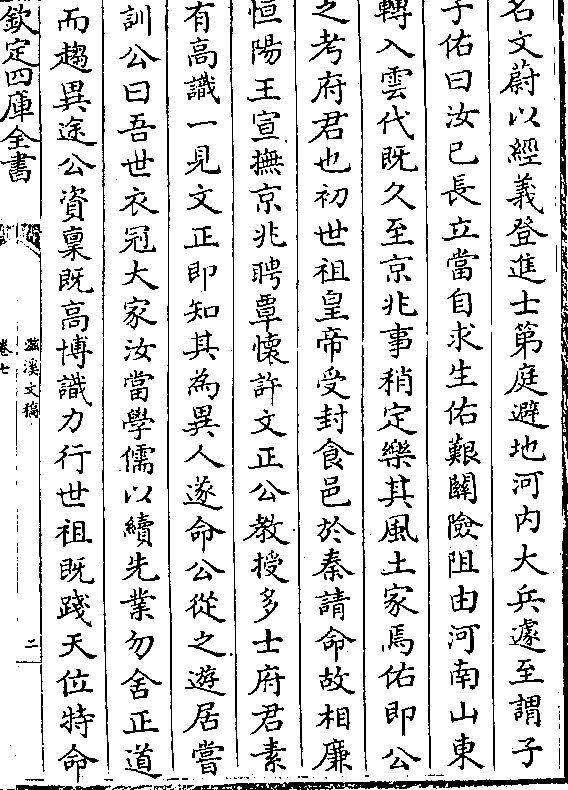 名文蔚以經義登進士第庭避地河内大兵遽至謂子
子佑曰汝已長立當自求生佑艱關險阻由河南山東
轉入雲代既久至京兆事稍定樂其風土家焉佑即公
之考府君也初世祖皇帝受封食邑於秦請命故相廉
恒陽王宣撫京兆聘覃懷許文正公教授多士府君素
有高識一見文正即知其為異人遂命公從之遊居嘗
訓公曰吾世衣冠大家汝當學儒以續先業勿舍正道
而趨異途公資稟既高博識力行世祖既踐天位特命
欽定四庫全書
滋溪文稿
卷七
二